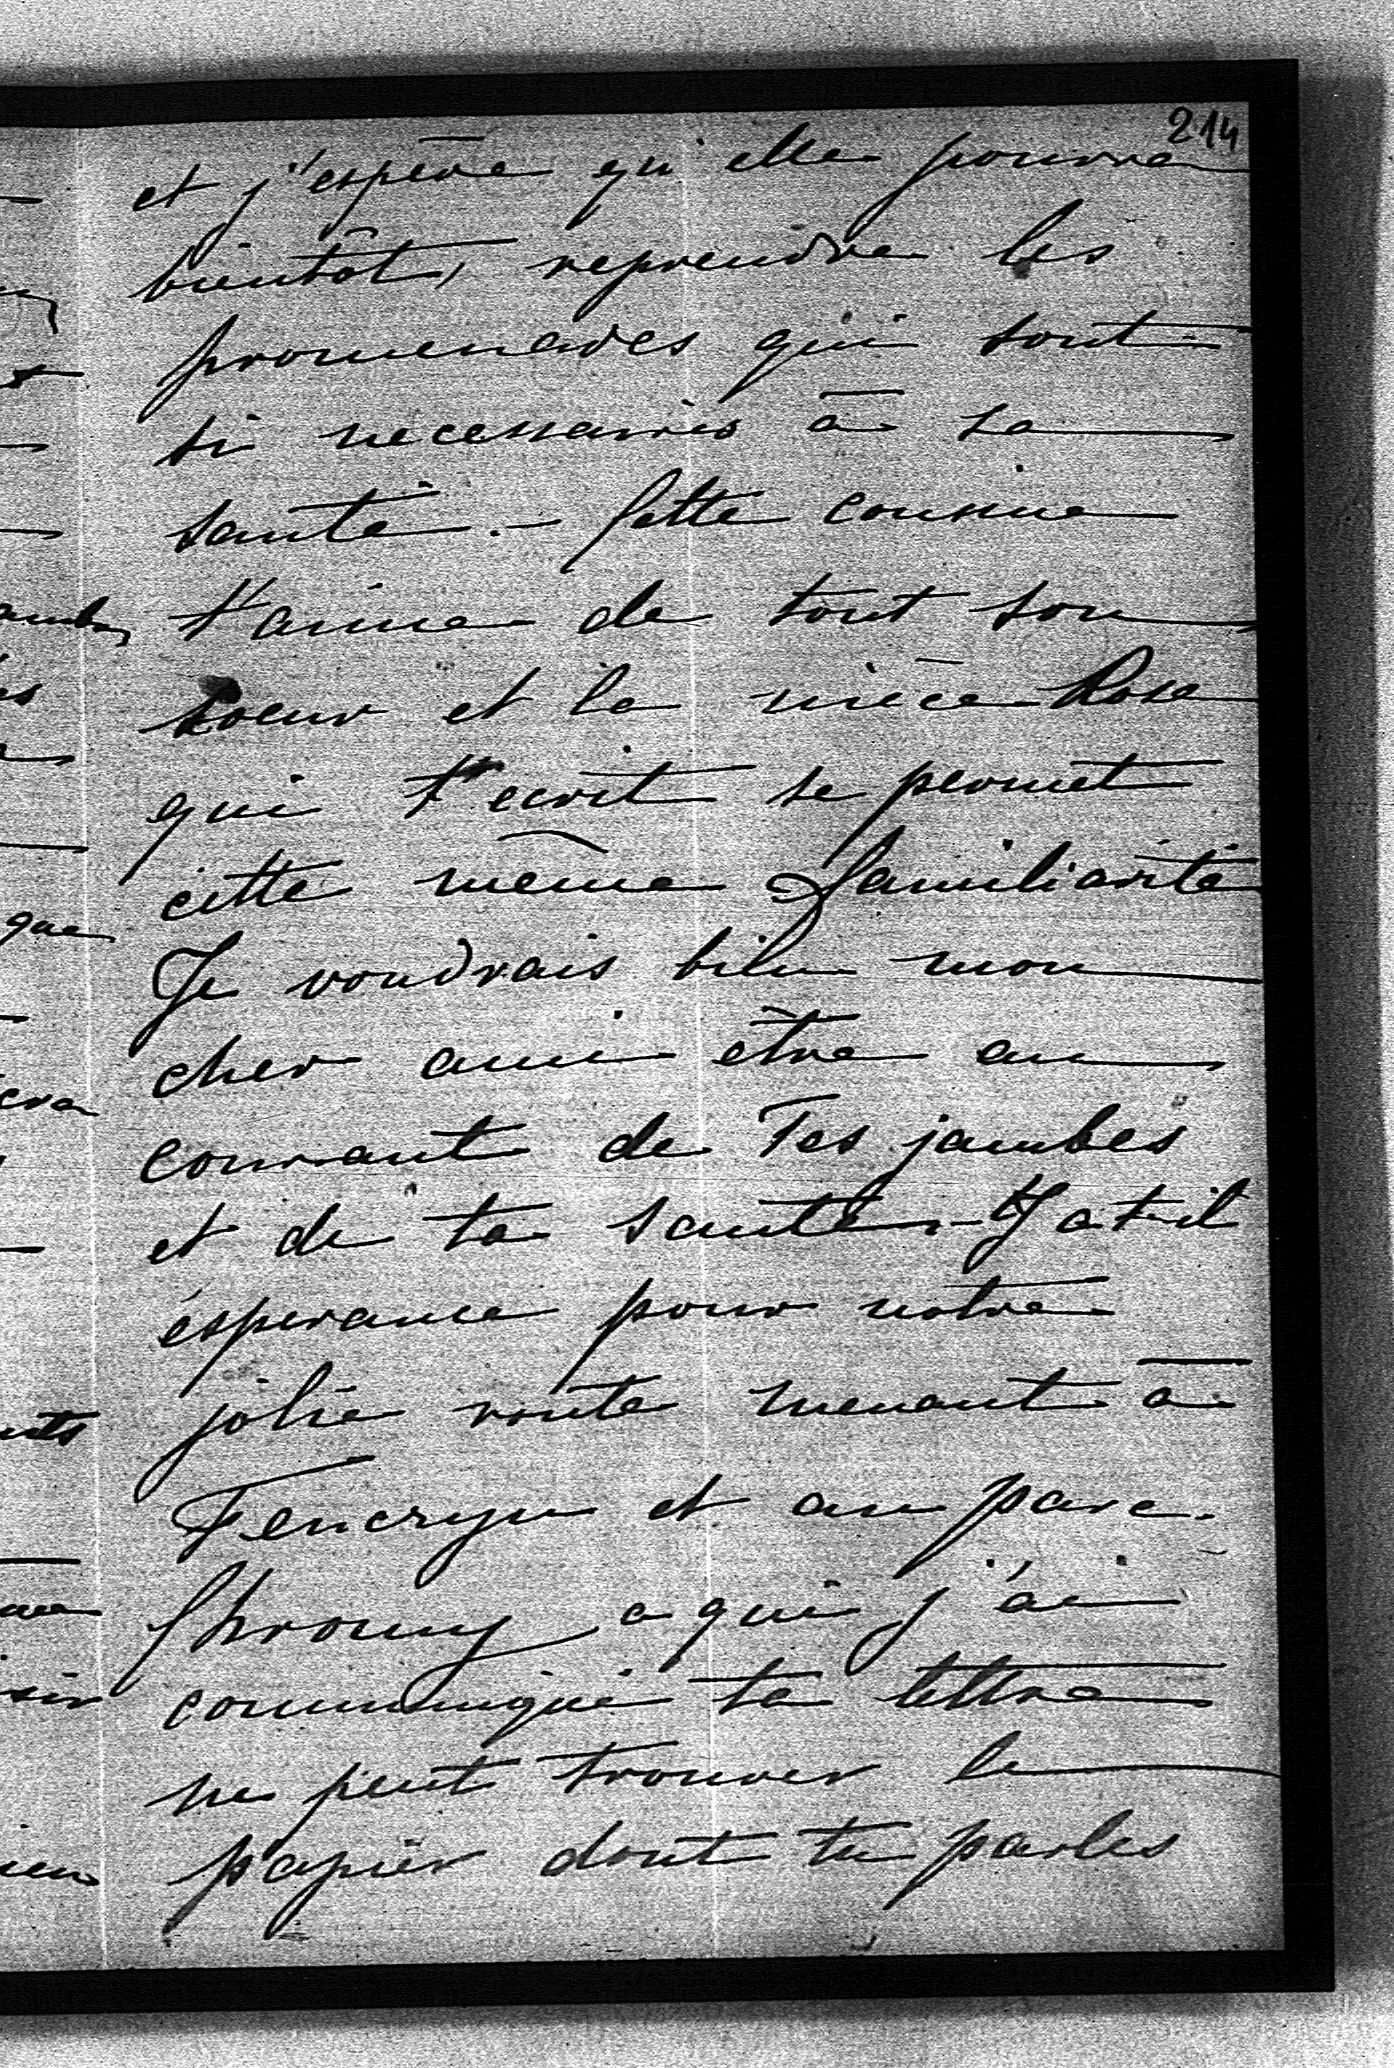 214
et j'espère qu'elle pourra
bientôt, reprendre les
promenades qui sont
si necessaires à sa
santé. - Cette cousine
t'aime de tout son
coeur et la nièce Rosa
qui t'écrit se permet
cette même familiarité
Je voudrais bien mon
cher ami être au
courant de Tes jambes
et de ta santé - Y a t-il
ésperance pour notre
jolie route menant à
et au parc.
a qui j'ai
communiqué ta lettre
ne peut trouver le
papier dont tu parles